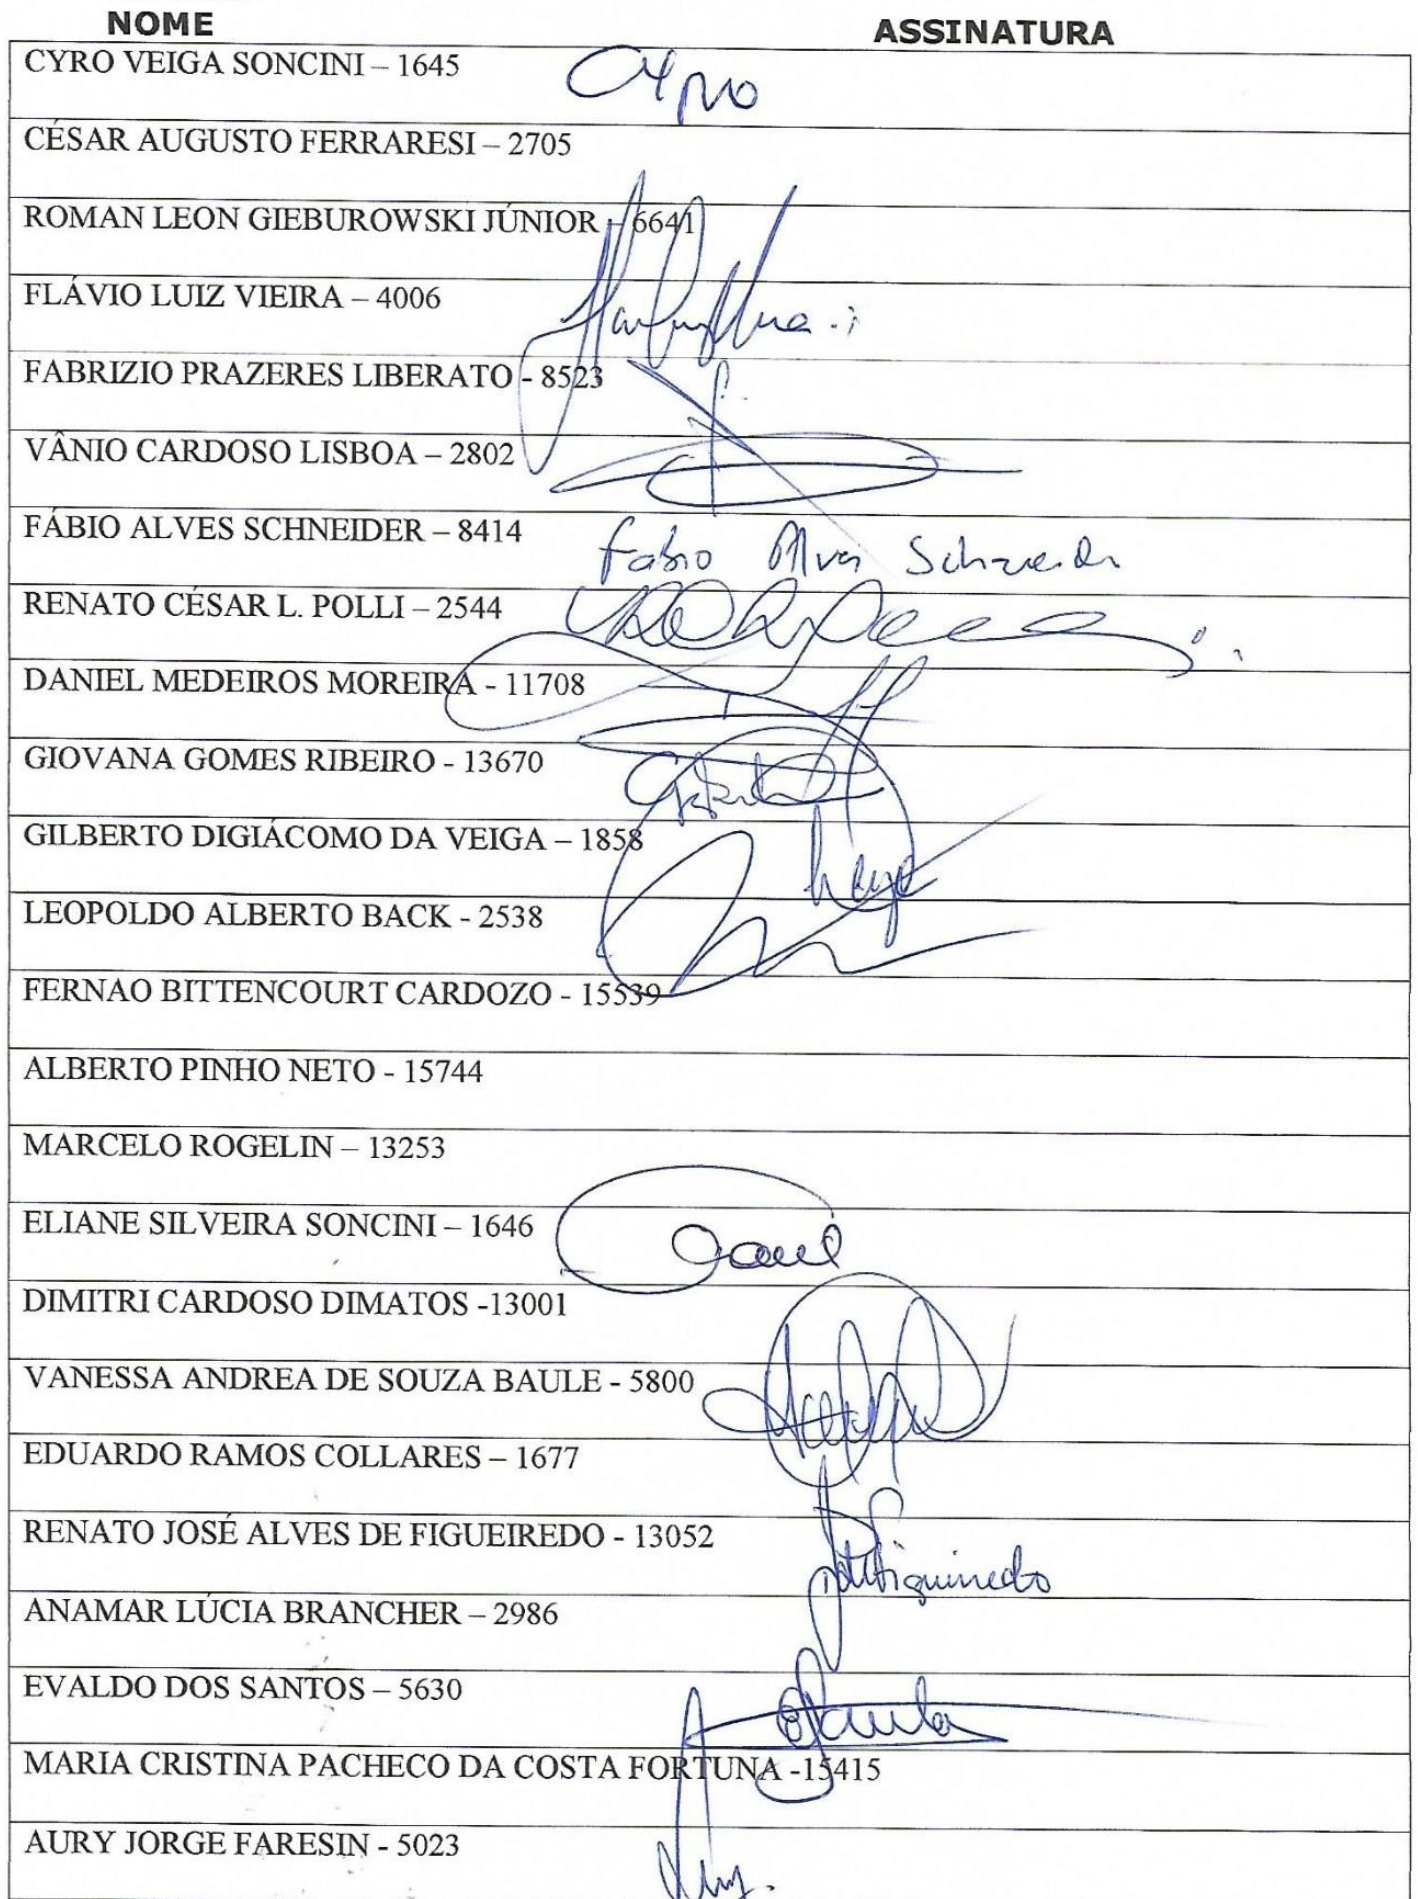 NOME ASSINATURA
CYRO VEIGA SONCINI – 1645 Cyro
CÉSAR AUGUSTO FERRARESI – 2705
ROMAN LEON GIEBUROWSKI JÚNIOR – 6641
FLÁVIO LUIZ VIEIRA – 4006
FABRIZIO PRAZERES LIBERATO - 8523
VÂNIO CARDOSO LISBOA – 2802
FÁBIO ALVES SCHNEIDER – 8414 Fabio Alves Schneider
RENATO CÉSAR L. POLLI – 2544
DANIEL MEDEIROS MOREIRA - 11708
GIOVANA GOMES RIBEIRO - 13670
GILBERTO DIGIÁCOMO DA VEIGA – 1858
LEOPOLDO ALBERTO BACK - 2538
FERNAO BITTENCOURT CARDOZO - 15539
ALBERTO PINHO NETO - 15744
MARCELO ROGELIN – 13253
ELIANE SILVEIRA SONCINI – 1646
DIMITRI CARDOSO DIMATOS -13001
VANESSA ANDREA DE SOUZA BAULE - 5800
EDUARDO RAMOS COLLARES – 1677
RENATO JOSÉ ALVES DE FIGUEIREDO - 13052
ANAMAR LÚCIA BRANCHER – 2986
EVALDO DOS SANTOS – 5630
MARIA CRISTINA PACHECO DA COSTA FORTUNA -15415
AURY JORGE FARESIN - 5023